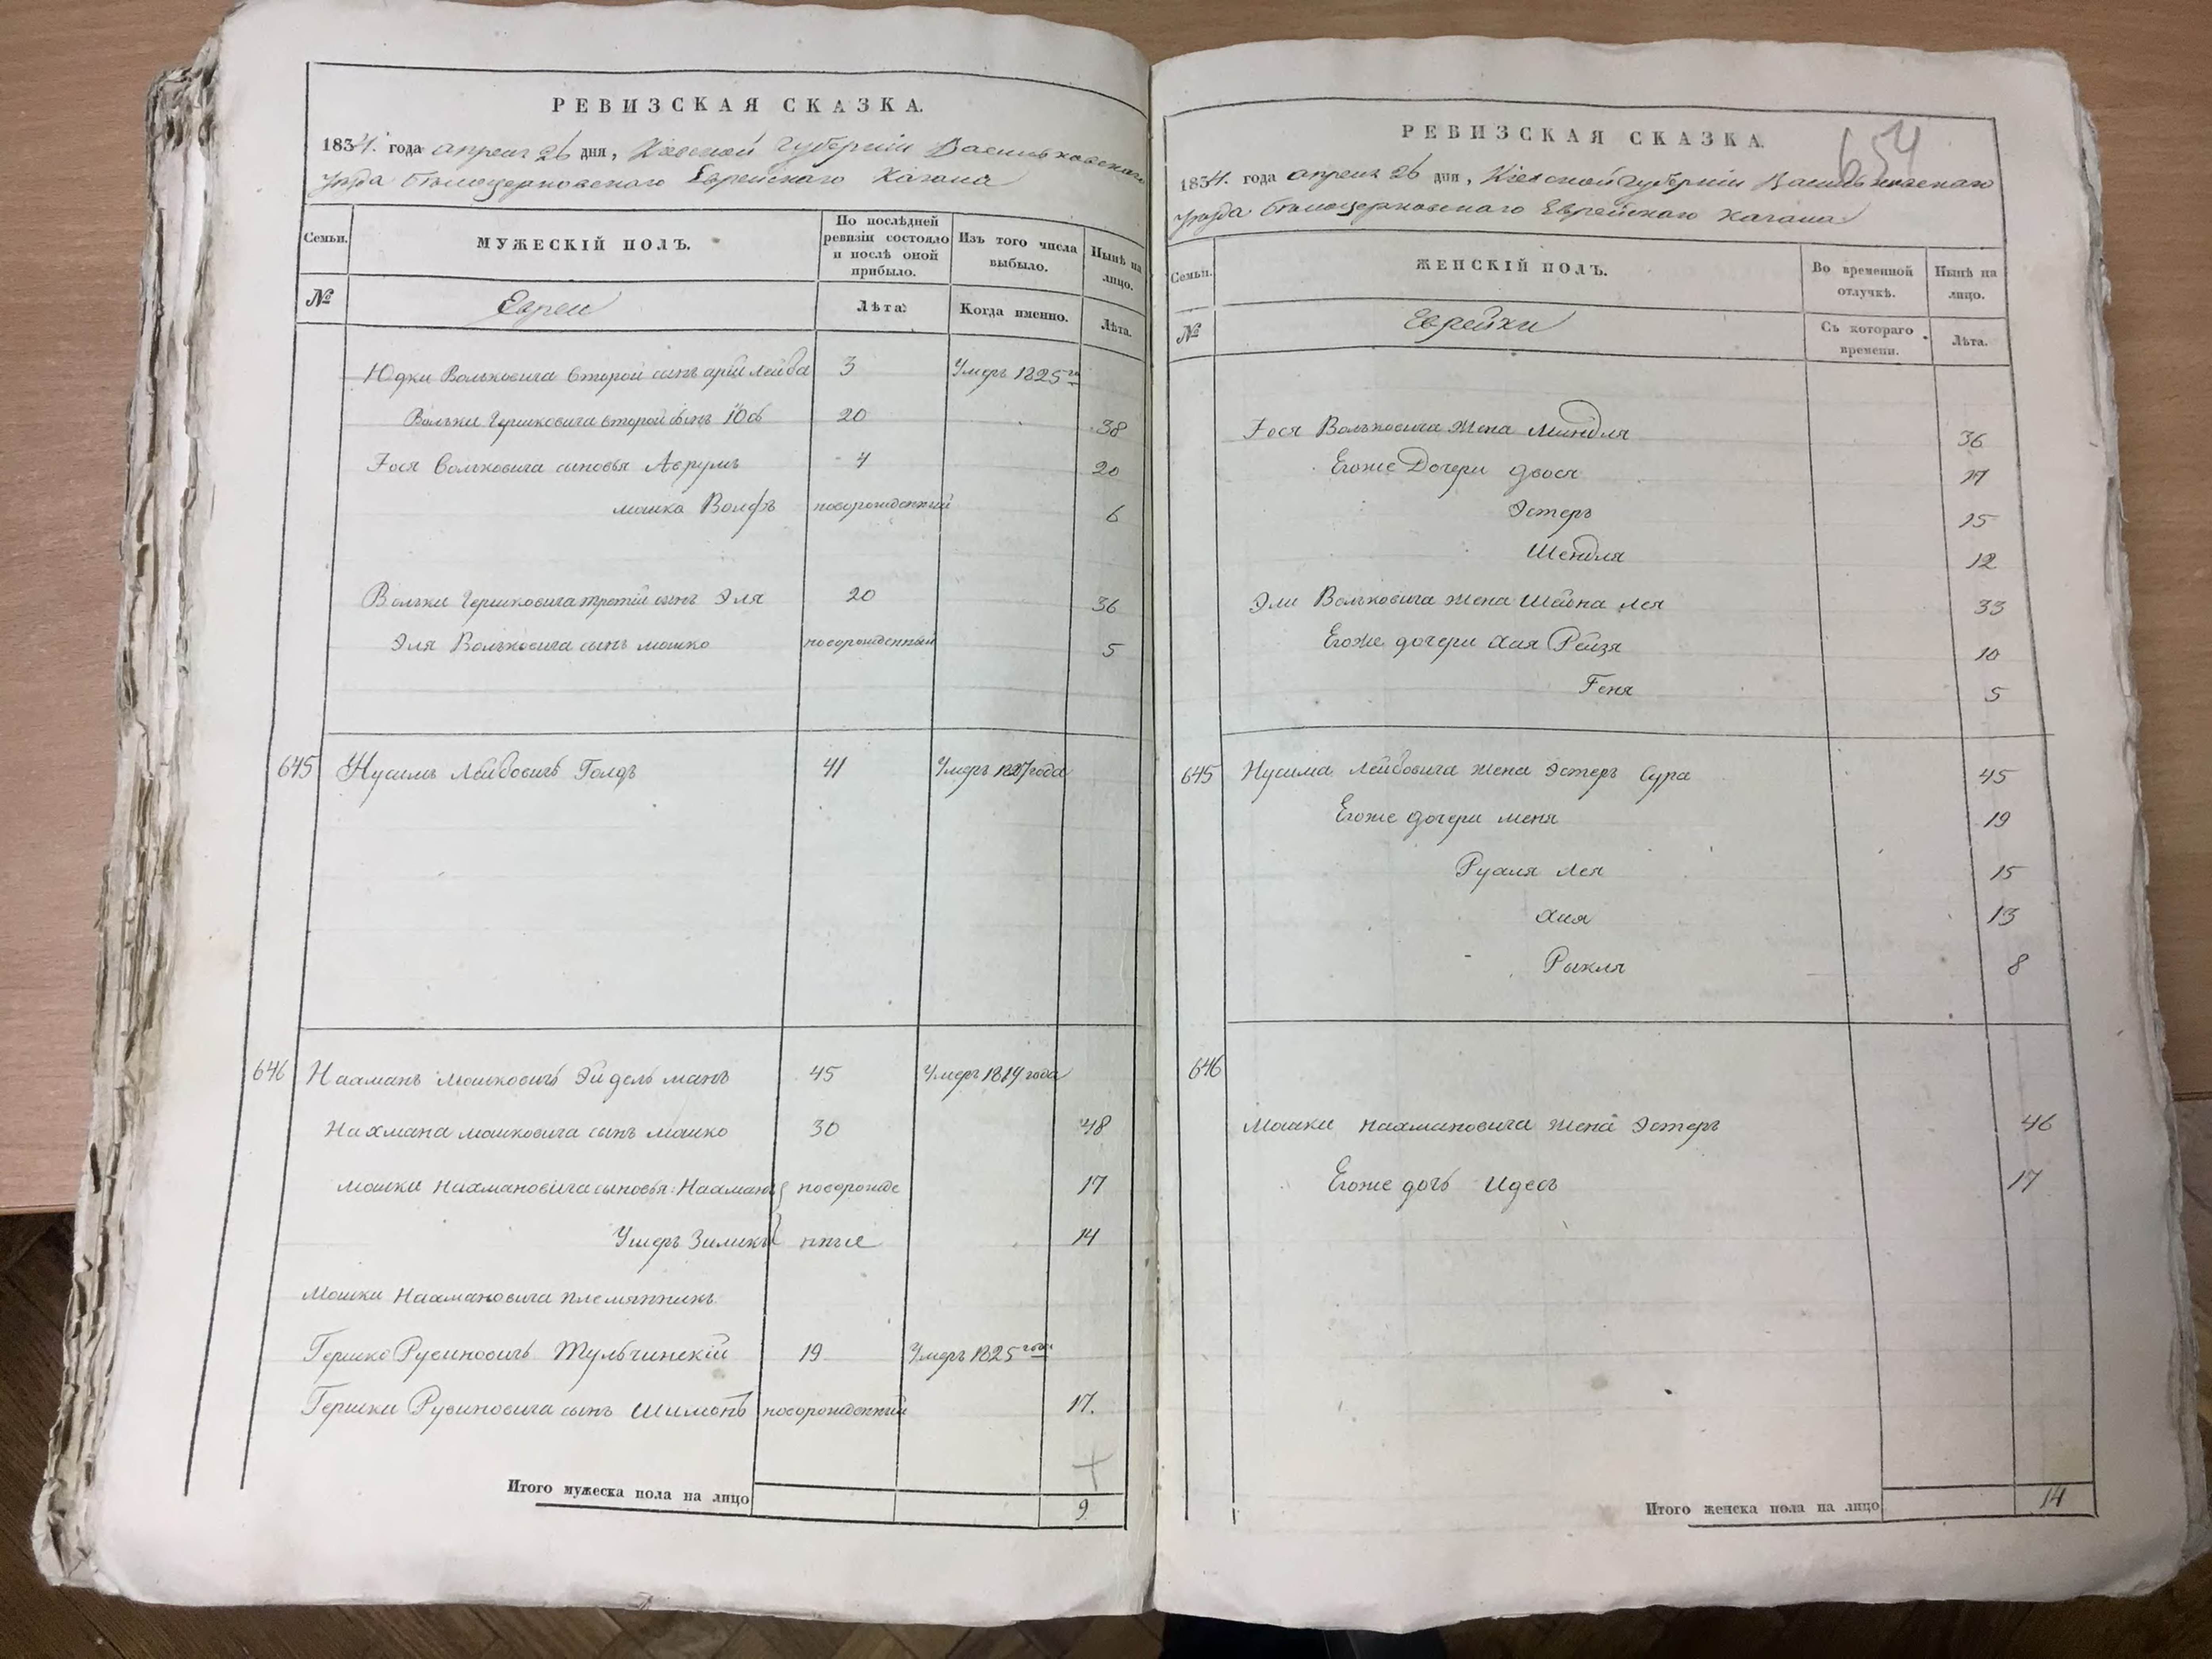 РЕВИЗСКАЯ СКАЗКА.
1834. года апреля 26 дня, Киевской Губерніи Васильковского
уезда Белоцерковского Еврейского Кагала
Семьи.
МУЖЕСКІЙ ПОЛЪ.
По послѣдней ревизіи состояло и послѣ оной прибыло.
Изъ того числа выбыло.
Нынѣ на лицо.
№
Евреи
Лѣта.
Когда именно.
Лѣта.
Юдки Вольковича второй сынъ арій Лейба 3 Умеръ 1825 го
Вольки Гершковича второй сынъ Юсь 20 38
Іося Вольковича сыновья Аврумъ 4 20
мошко Волфъ новорожденный 6
Вольки Гершковича третій сынъ Эля 20 36
Эля Вольковича сынъ мошко новорожденный 5
645 Нусимъ Лейбовичъ Голдъ 41 Умеръ 1827 года
646 Нахманъ мошковичъ Эйдельманъ 45 Умеръ 1819 года
Нахмана мошковича сынъ мошко 30 48
мошки нахмановича сыновья: Нахманъ новорожде 17
Умеръ Зилихъ нные 14
мошки Нахмановича племянникъ
Гершко Рувиновичъ Тульчинскій 19 Умеръ 1825 года
Гершки Рувиновича сынъ Шимонъ новорожденный 17.
Итого мужеска пола на лицо 9
РЕВИЗСКАЯ СКАЗКА.
654
1834. года апреля 26 дня, Киевской Губерніи Васильковскаго
уезда Белоцерковского Еврейского кагала
Семьи.
ЖЕНСКІЙ ПОЛЪ.
Во временной отлучкѣ.
Нынѣ на лицо.
№
Еврейки
Съ котораго времени.
Лѣта.
Іося Вольковича жена Миндля 36
Егоже Дочери двося 17
Эстеръ 15
Шендля 12
Эли Вольковича жена Шейна лея 33
Егоже дочери хая Рейзя 10
Геня 5
645 Нусима Лейбовича жена Эстеръ Сура 45
Егоже дочери меня 19
Рухля Лея 15
хая 13
Рыкля 8
646
мошки нахмановича жена Эстеръ 46
Егоже дочь Идесъ 17
Итого женска пола на лицо 14